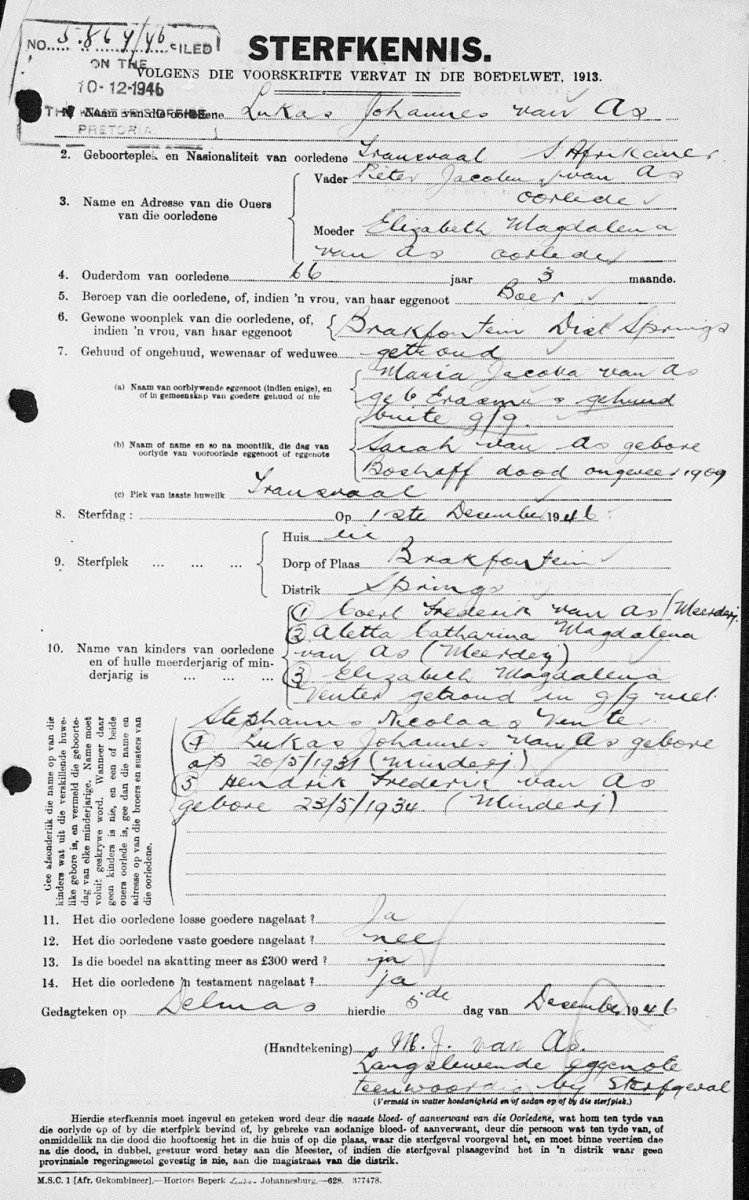 NO. 5.864/46 FILED
ON THE
10-12-1946
THE MASTER'S OFFICE
PRETORIA
STERFKENNIS.
VOLGENS DIE VOORSKRIFTE VERVAT IN DIE BOEDELWET, 1913.
1. Naam van die oorledene Lukas Johannes van As
2. Geboorteplek en Nasionaliteit van oorledene Transvaal S. Afrikaner
3. Name en Adresse van die Ouers van die oorledene
Vader Pieter Jacobus van As
oorlede
Moeder Elizabeth Magdalena
van As oorlede
4. Ouderdom van oorledene 66 jaar 3 maande.
5. Beroep van die oorledene, of, indien 'n vrou, van haar eggenoot Boer
6. Gewone woonplek van die oorledene, of,
indien 'n vrou, van haar eggenoot Brakfontein Dist Springs
7. Gehuud of ongehuud, wewenaar of weduwee getroud
(a) Naam van oorblywende eggenoot (indien enige), en
of in gemeenskap van goedere gehuud of nie
Maria Jacoba van As
geb Erasmus gehuud
buite g/g.
(b) Naam of name en so na moontlik, die dag van
oorlyde van vooroorlede eggenoot of eggenote
Sarah van As gebore
Boshoff dood ongeveer 1909
(c) Plek van laaste huwelik Transvaal
8. Sterfdag : Op 1ste Desember 1946
9. Sterfplek ... ... ...
Huis
Dorp of Plaas Brakfontein
Distrik Springs
10. Name van kinders van oorledene
en of hulle meerderjarig of min-
derjarig is ... ... ...
① Coert Frederik van As (Meerderj.
② Aletta Catharina Magdalena
van As (Meerderj)
③ Elizabeth Magdalena
Venter getroud in g/g met
Stephanus Nicolaas Venter.
④ Lukas Johannes van As gebore
op 20/5/1931 (Minderj)
⑤ Hendrik Frederik van As
gebore 23/5/1934. (Minderj)
Gee afsonderlik die name op van die
kinders wat uit die verskillende huwe-
like gebore is, en vermeld die geboorte-
dag van elke minderjarige. Name moet
voluit geskrywe word. Wanneer daar
geen kinders is nie, en een of beide
ouers oorlede is, gee dan die name en
adresse op van die broers en susters van
die oorledene.
11. Het die oorledene losse goedere nagelaat ? Ja
12. Het die oorledene vaste goedere nagelaat ? nee
13. Is die boedel na skatting meer as £300 werd ? ja
14. Het die oorledene 'n testament nagelaat ? ja
Gedagteken op Delmas hierdie 5de dag van Desember 1946
(Handtekening) M. J. van As.
Langslewende eggenote
teenwoordig by Sterfgeval
(Vermeld in watter hoedanigheid en of aedan op of by die sterfplek.)
Hierdie sterfkennis moet ingevul en geteken word deur die naaste bloed- of aanverwant van die Oorledene, wat hom ten tyde van
die oorlyde op of by die sterfplek bevind of, by gebreke van sodanige bloed- of aanverwant, deur die persoon wat ten tyde van, of
onmiddellik na die dood die hooftoesig het in die huis of op die plaas, waar die sterfgeval voorgeval het, en moet binne veertien dae
na die dood, in dubbel, gestuur word hetsy aan die Meester, of indien die sterfgeval plaasgevind het in 'n distrik waar geen
provinsiale regeringsetel gevestig is nie, aan die magistraat van die distrik.
M.S.C. 1 [Afr. Gekombineer].—Hortors Beperk Johannesburg.—628. 377478.